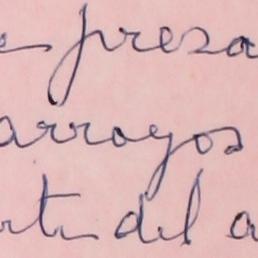 e presa
arroyos
arte del a